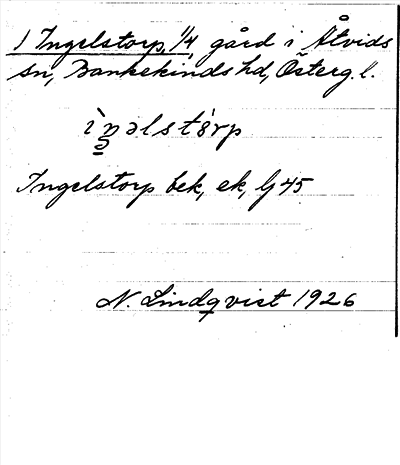 1 Ingelstorp, 1/4, gård i Åtvids
sn, Bankekinds hd, Österg. l.
ìŋəlstòrp
Ingelstorp bek, ek, Lj 45
N. Lindqvist 1926